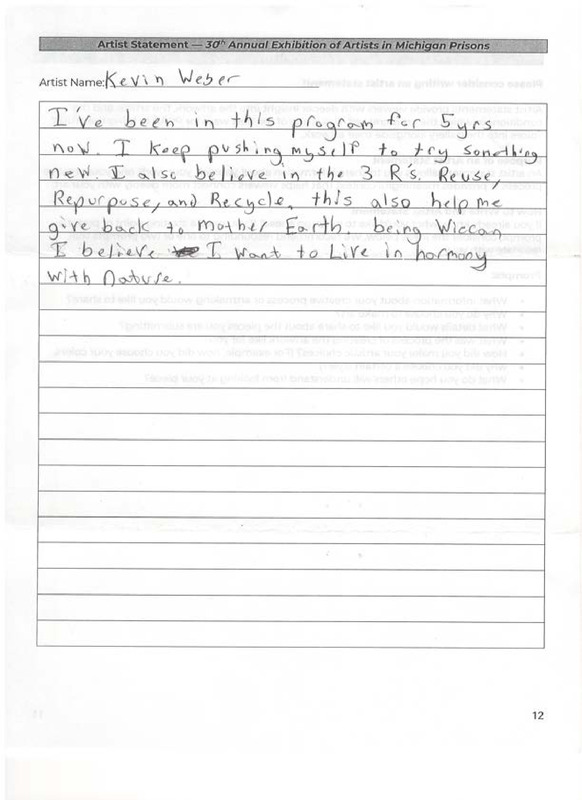 Artist Statement — 30th Annual Exhibition of Artists in Michigan Prisons
Artist Name: Kevin Weber
I've been in this program for 5yrs
now. I keep pushing myself to try something
new. I also believe in the 3 R's. Reuse,
Repurpose, and Recycle, this also help me
give back to mother Earth, being Wiccan
I believe I want to Live in harmony
with Nature.
12